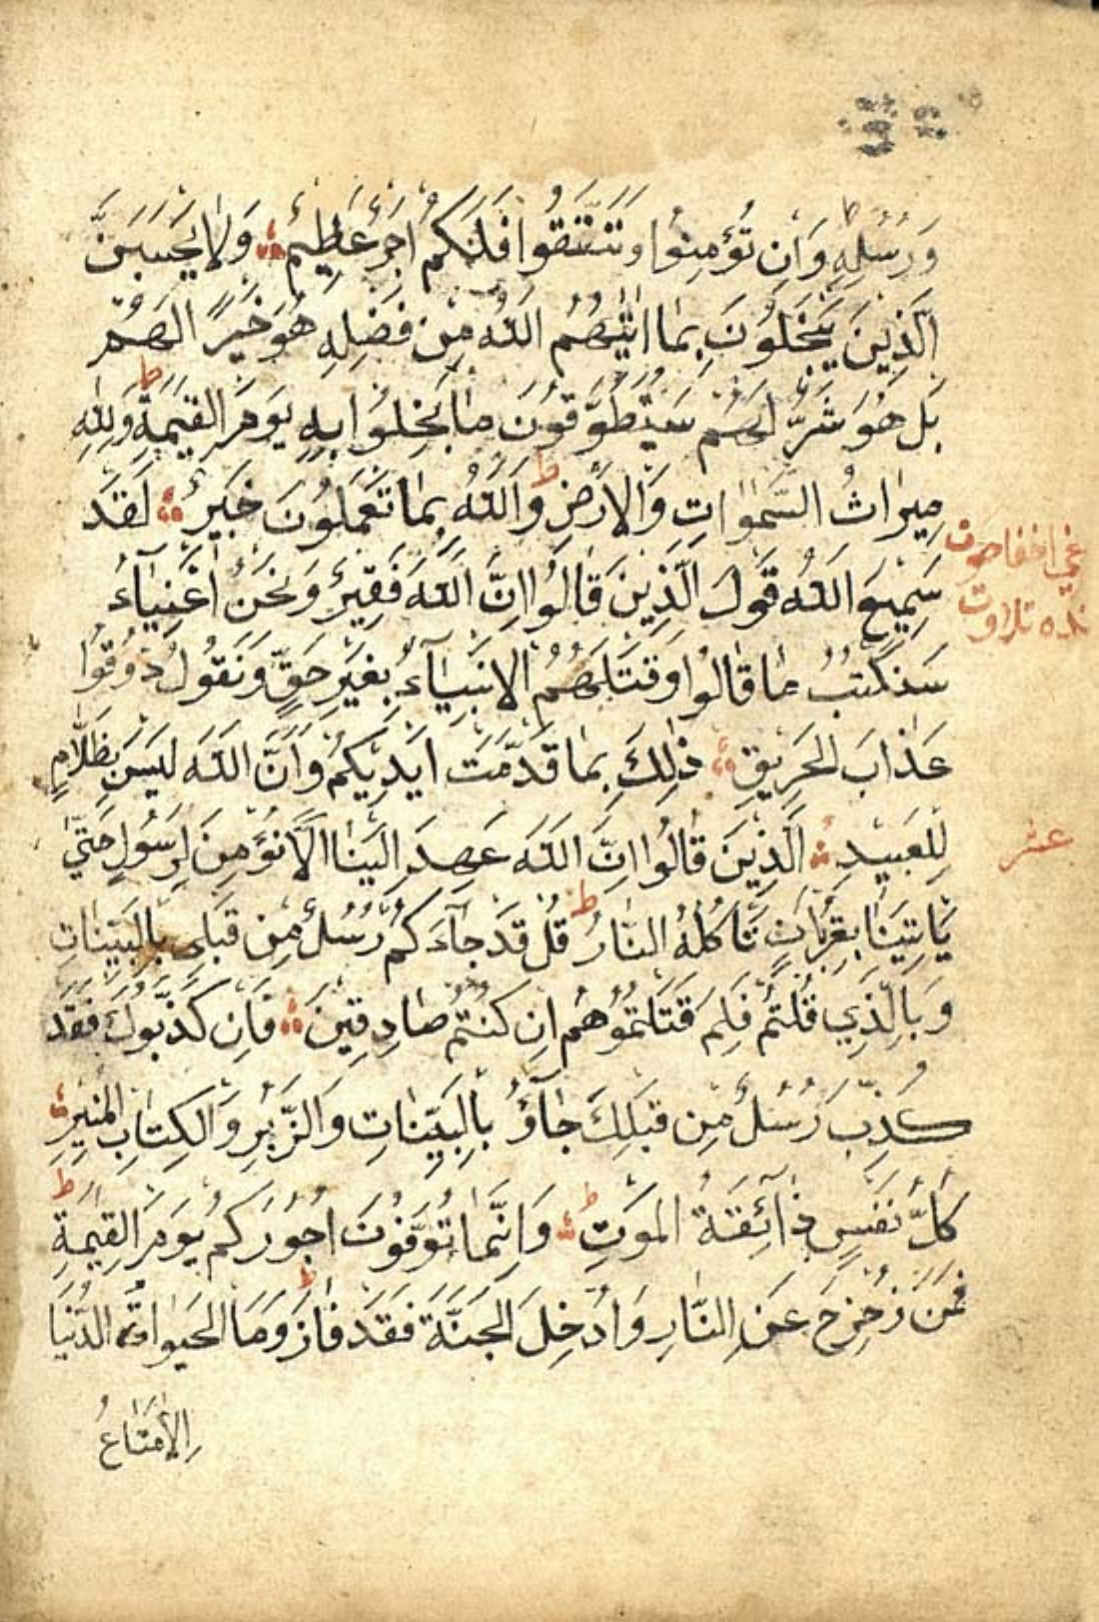 وَرُسُلِهِ وَاِنْ تُؤْمِنُوا وَتَتَّقُوا فَلَكُمْ اَجْرٌ عَظِيمٌ وَلَا يَحْسَبَنَّ
الَّذِينَ يَبْخَلُونَ بِمَا اٰتٰيهُمُ اللّٰهُ مِنْ فَضْلِهِ هُوَ خَيْرًا لَهُمْ
بَلْ هُوَ شَرٌّ لَهُمْ سَيُطَوَّقُونَ مَا بَخِلُوا بِهِ يَوْمَ الْقِيٰمَةِ ط وَلِلّٰهِ
مِيرَاثُ السَّمٰوَاتِ وَالْاَرْضِ ط وَاللّٰهُ بِمَا تَعْمَلُونَ خَبِيرٌ لَقَدْ
سَمِيعَ اللّٰهُ قَوْلَ الَّذِينَ قَالُوا اِنَّ اللّٰهَ فَقِيرٌ وَنَحْنُ اَغْنِيَاءُ
سَنَكْتُبُ مَا قَالُوا وَقَتْلَهُمُ الْاَنْبِيَآءَ بِغَيْرِ حَقٍّ وَنَقُولُ ذُوقُوا
عَذَابَ الْحَرِيقِ ذٰلِكَ بِمَا قَدَّمَتْ اَيْدِيكُمْ وَاَنَّ اللّٰهَ لَيْسَ بِظَلَّامٍ
لِلْعَبِيدِ اَلَّذِينَ قَالُوا اِنَّ اللّٰهَ عَهِدَ اِلَيْنَا اَلَّا نُؤْمِنَ لِرَسُولٍ حَتّٰى
عشر
يَاْتِيَنَا بِقُرْبَانٍ تَاْكُلُهُ النَّارُ ط قُلْ قَدْ جَآءَكُمْ رُسُلٌ مِنْ قَبْلِى بِالْبَيِّنَاتِ
وَبِالَّذِي قُلْتُمْ فَلِمَ قَتَلْتُمُوهُمْ اِنْ كُنْتُمْ صَادِقِينَ فَاِنْ كَذَّبُوكَ فَقَدْ
كُذِّبَ رُسُلٌ مِنْ قَبْلِكَ جَآؤُ بِالْبَيِّنَاتِ وَالزُّبُرِ وَالْكِتَابِ الْمُنِيرِ
كُلُّ نَفْسٍ ذَآئِقَةُ الْمَوْتِ ط وَاِنَّمَا تُوَفَّوْنَ اُجُورَكُمْ يَوْمَ الْقِيٰمَةِ ط
فَمَنْ زُحْزِحَ عَنِ النَّارِ وَاُدْخِلَ الْجَنَّةَ فَقَدْ فَازَ ط وَمَا الْحَيٰوةُ الدُّنْيَا
اِلَّا مَتَاعُ